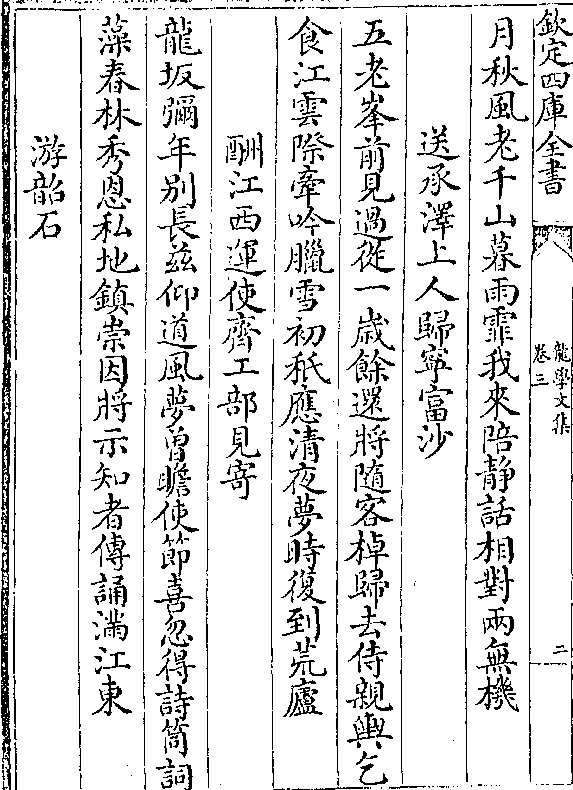 欽定四庫全書
龍學文集
卷三
二
月秋風老千山暮雨霏我來陪静話相對兩無機
送承澤上人歸寧富沙
五老峯前見過從一歳餘還將隨客棹歸去侍親輿乞
食江雲際牽吟臘雪初秖應清夜夢時復到荒廬
酬江西運使齊工部見寄
龍坂彌年别長兹仰道風夢曾瞻使節喜忽得詩筒詞
藻春林秀恩私地鎮崇因將示知者傳誦滿江東
游韶石